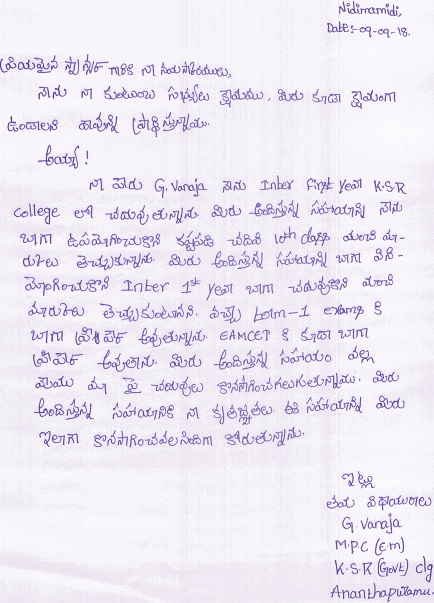 Nidimamidi,
Date:- 09-09-18.
ప్రియమైన స్పాన్సర్ గారికి నా నమస్కారములు,
నాను నా కుటుంబ సభ్యులు క్షేమము, మీరు కూడా క్షేమంగా
ఉండాలని దేవున్ని ప్రార్థిస్తున్నాము.
అయ్యా!
నా పేరు G. Vanaja నాను Inter First year K.S.R
college లో చదువుతున్నాను. మీరు అందిస్తున్న సహాయాన్ని నాను
బాగా ఉపయోగించుకొని కష్టపడి చదివి 10th classలో మంచి మా-
ర్కులు తెచ్చుకున్నాను. మీరు అందిస్తున్న సహాయాన్ని బాగా విని-
యోగించుకొని Inter 1st year బాగా చదువుకొని మంచి
మార్కులు తెచ్చుకుంటానని. వచ్చు term-1 exams కి
బాగా ప్రిపేర్ అవుతున్నాను. EAMCET కి కూడా బాగా
ప్రిపేర్ అవుతాను. మీరు అందిస్తున్న సహాయం వల్ల
మేము మా పై చదువులు కొనసాగించగలుగుతున్నాము. మీరు
అందిస్తున్న సహాయానికి నా కృతజ్ఞతలు. ఈ సహాయాన్ని మీరు
ఇలాగా కొనసాగించవలసిందిగా కోరుతున్నాను.
ఇట్లు
తమ విధేయురాలు
G. Vanaja
M.P.C (E.m)
K.S.R (Govt) clg
Ananthapuramu.